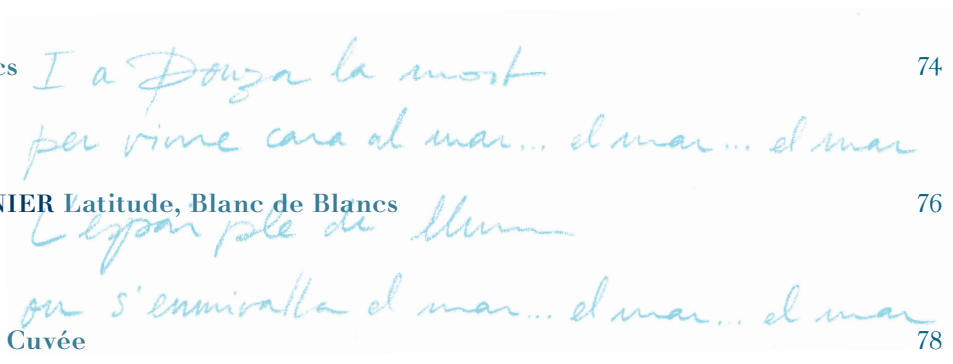 cs 74
I a Donza la mort
per viure cara al mar... el mar... el mar
NIER Latitude, Blanc de Blancs 76
L'espai ple de llum
on s'enmiralla el mar... el mar... el mar
Cuvée 78